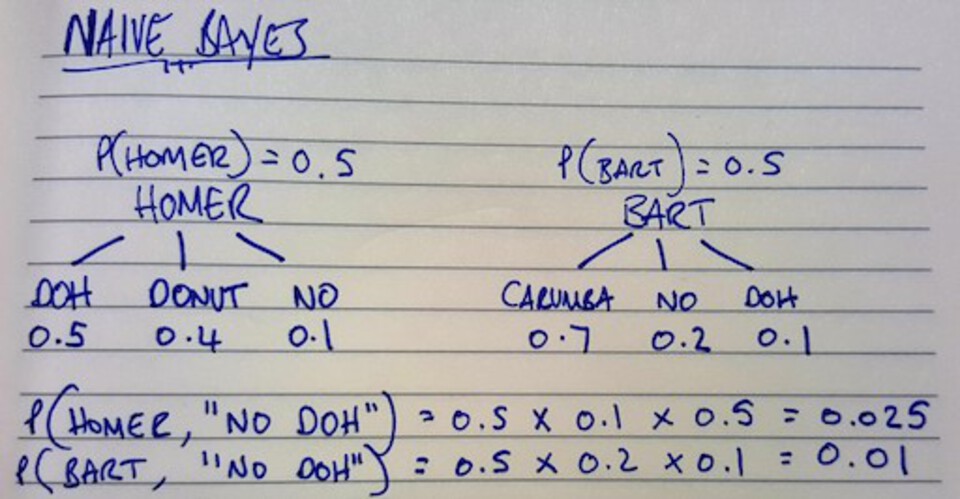 NAIVE BAYES
P(HOMER) = 0.5 P(BART) = 0.5
HOMER BART
DOH DONUT NO CARUMBA NO DOH
0.5 0.4 0.1 0.7 0.2 0.1
P(HOMER, "NO DOH") = 0.5 x 0.1 x 0.5 = 0.025
P(BART, "NO DOH") = 0.5 x 0.2 x 0.1 = 0.01